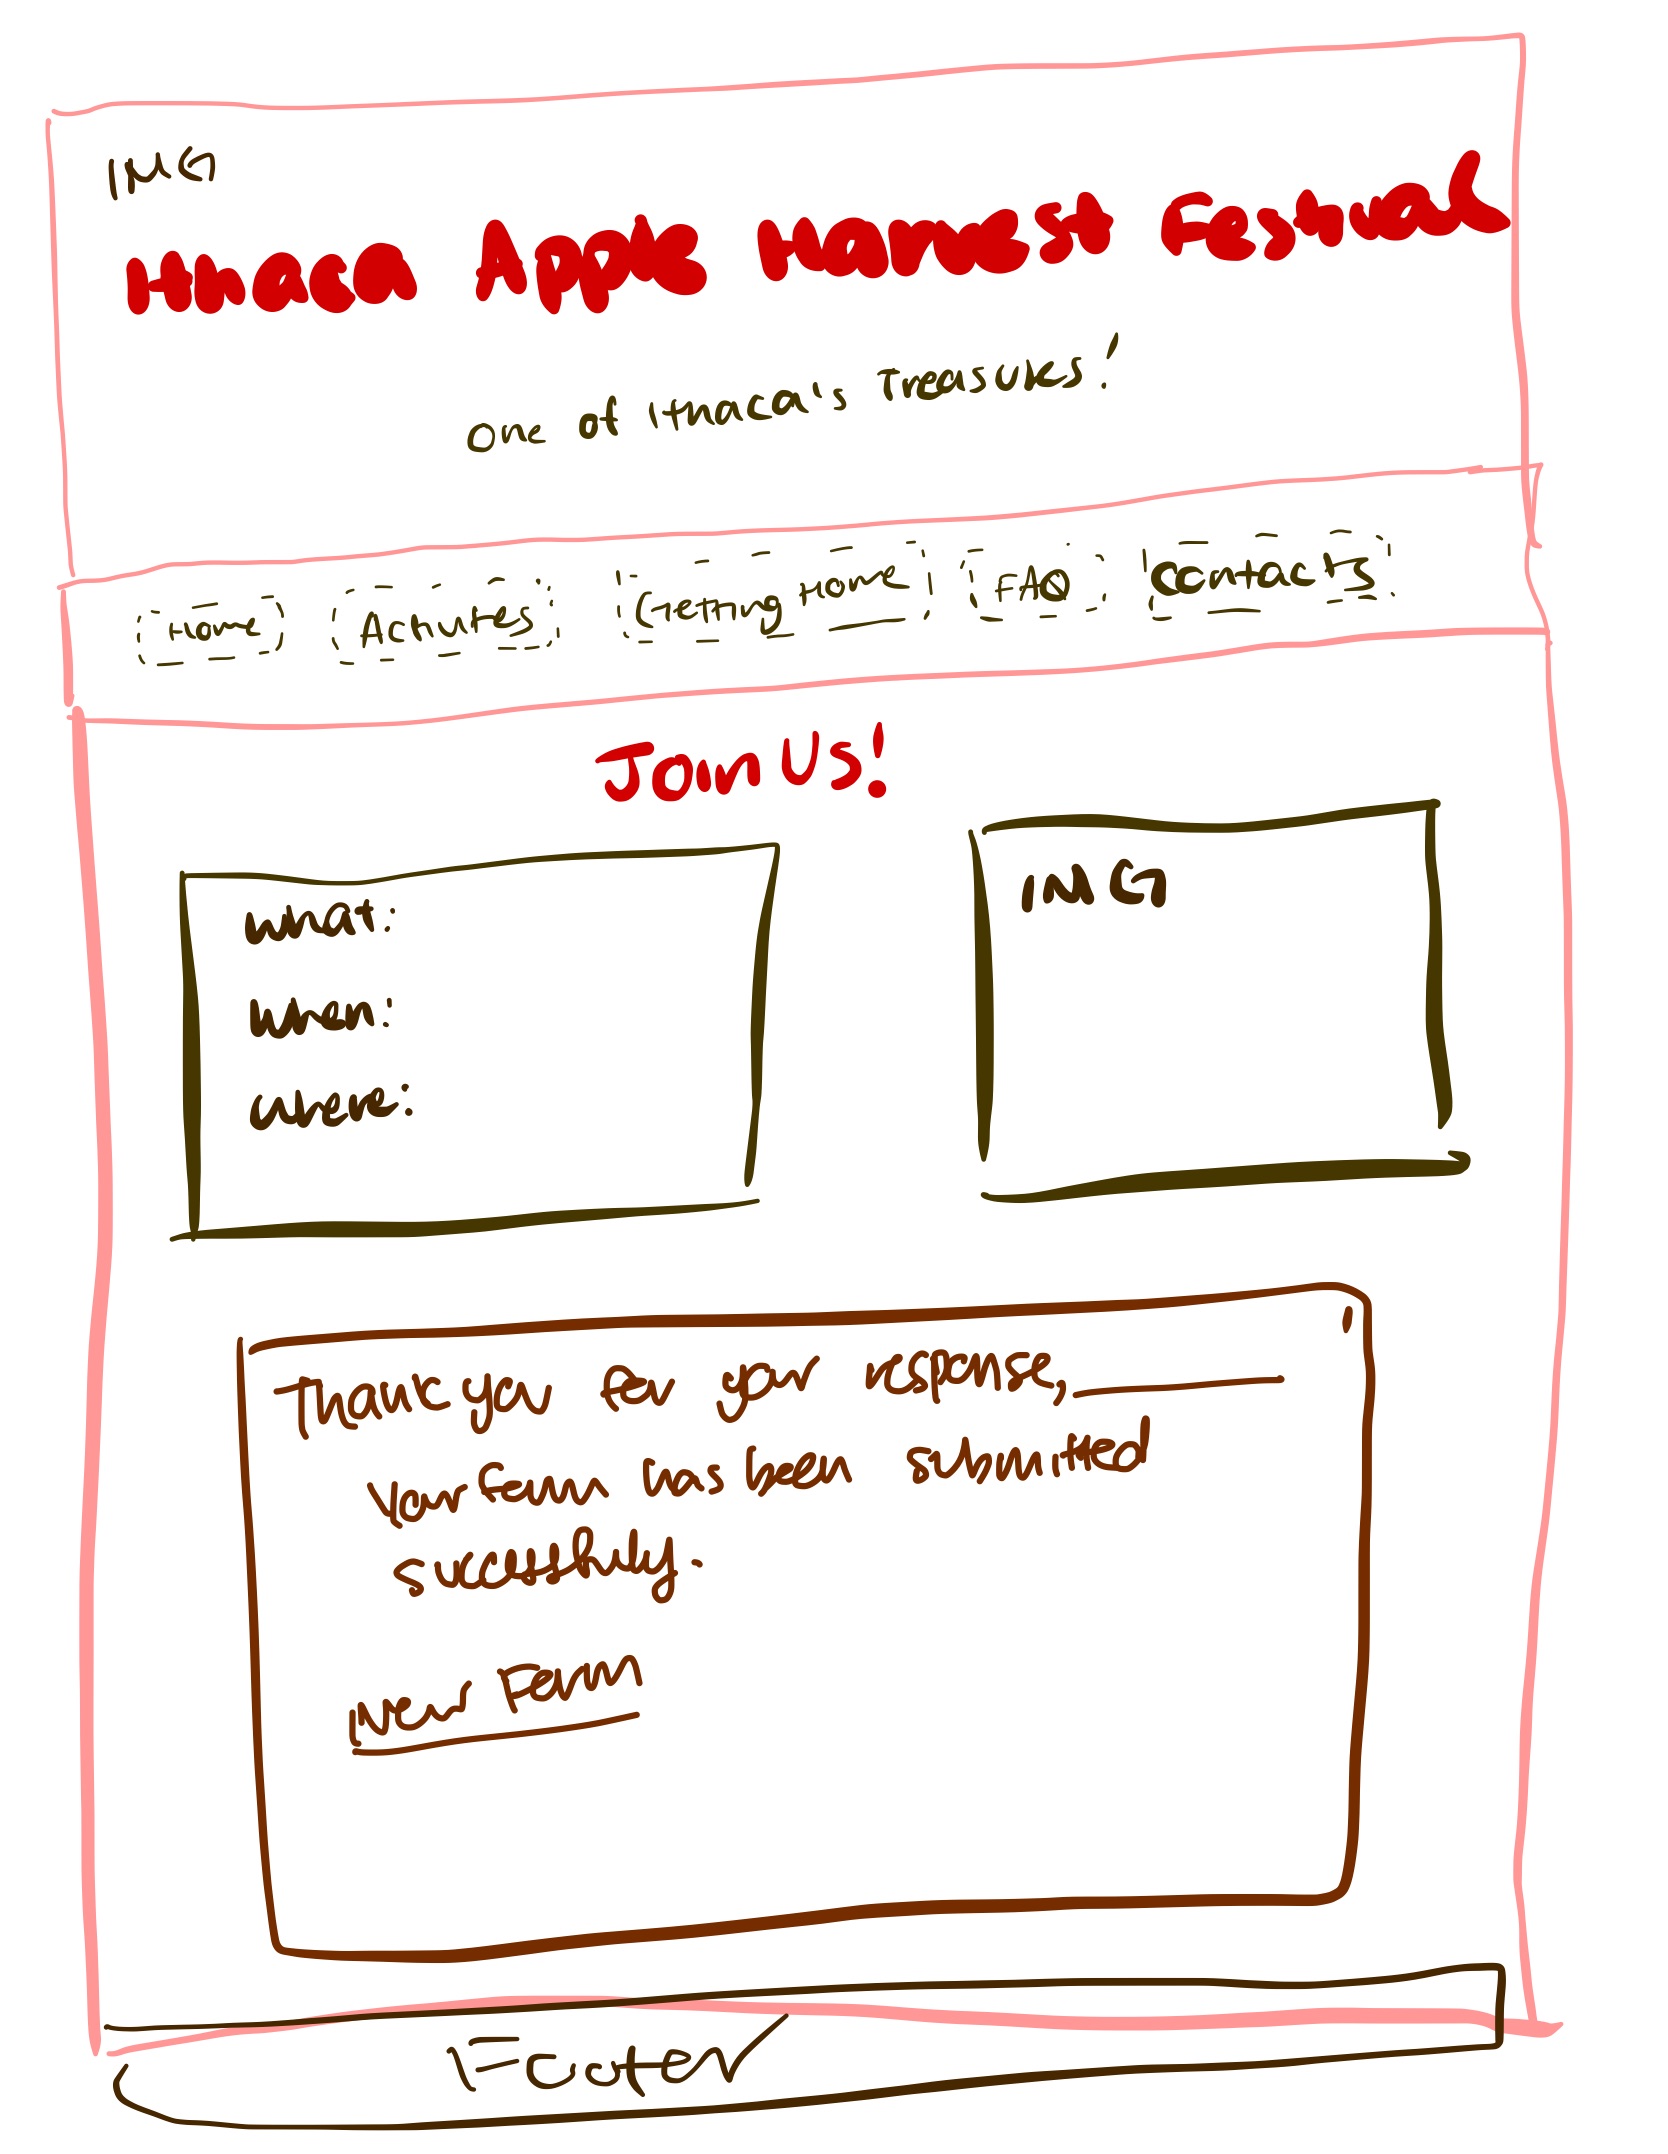 IMG
Ithaca Apple Harvest Festival
One of Ithaca's Treasures!
Home Activities Getting Home FAQ Contacts
Join Us!
What:
When:
Where:
IMG
Thank you for your response, ________
Your form has been submitted
successfully.
New Form
Footer